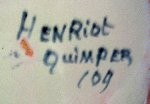 HENRIOT
QUIMPER
109